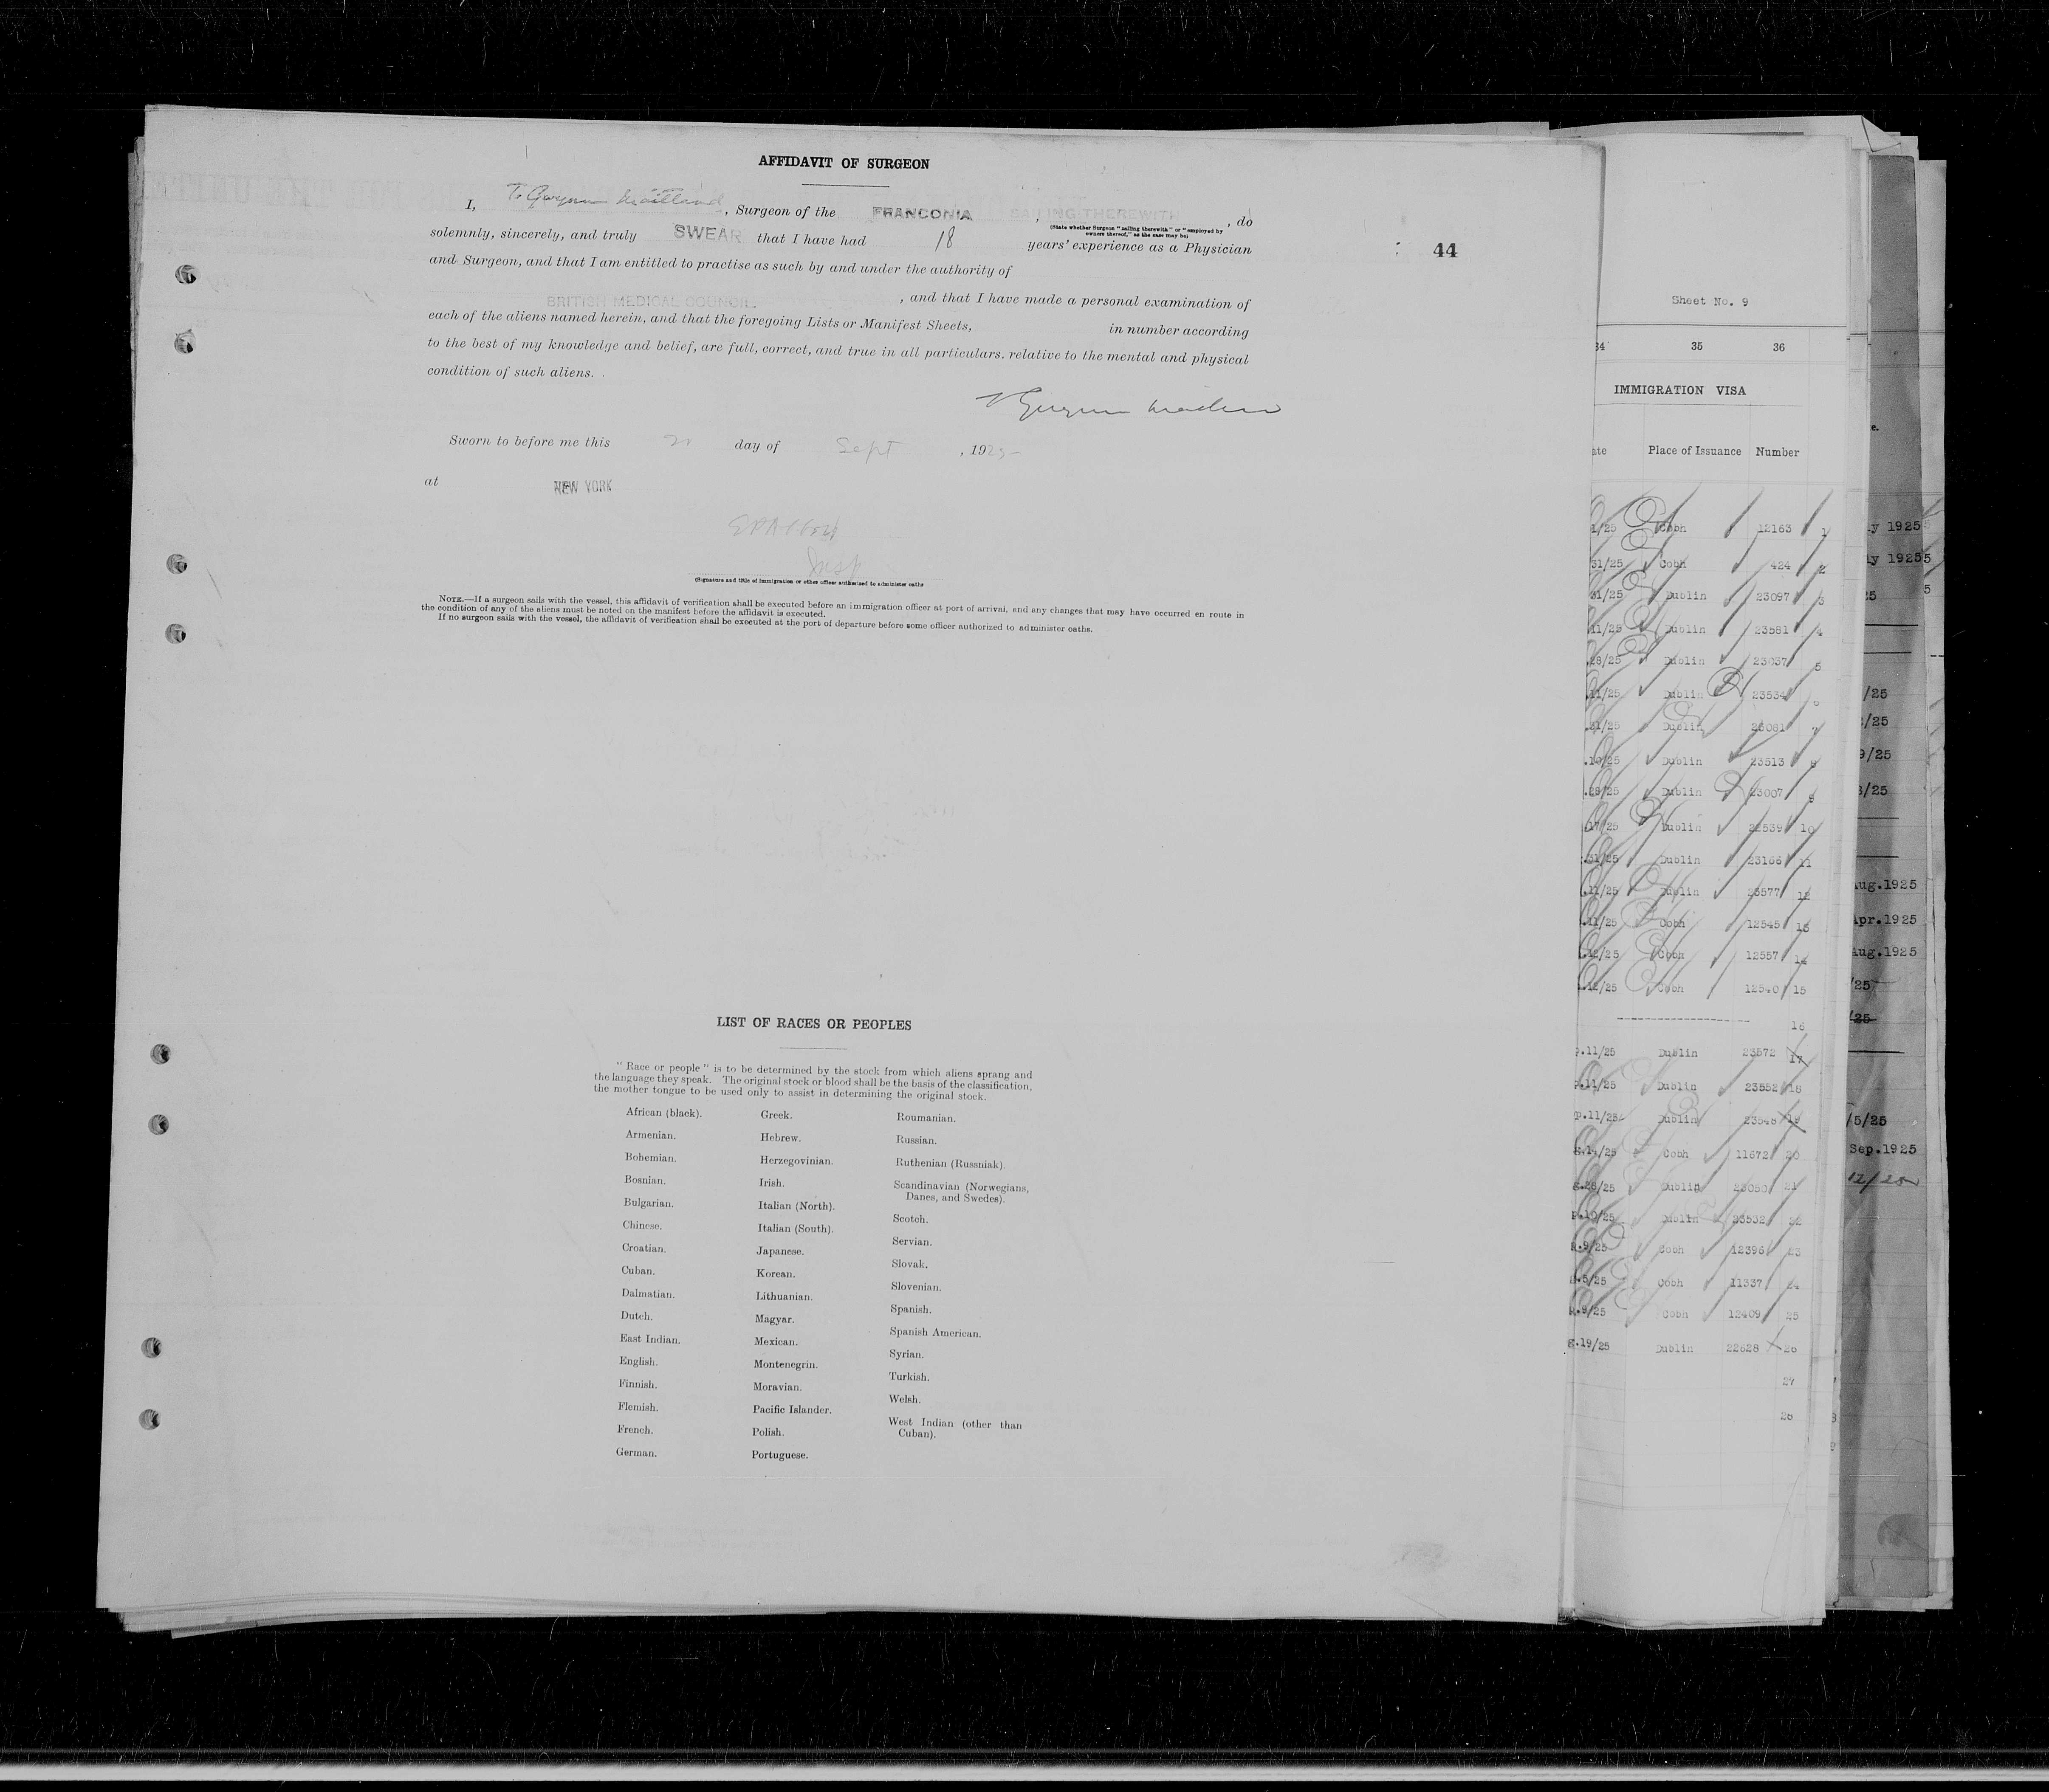 AFFIDAVIT OF SURGEON
I, T. Gwynne Maitland, Surgeon of the FRANCONIA, SAILING THEREWITH, do
(State whether Surgeon "sailing therewith" or "employed by
owners thereof," as the case may be)
solemnly, sincerely, and truly SWEAR that I have had 18 years' experience as a Physician
and Surgeon, and that I am entitled to practise as such by and under the authority of
BRITISH MEDICAL COUNCIL, and that I have made a personal examination of
each of the aliens named herein, and that the foregoing Lists or Manifest Sheets, in number according
to the best of my knowledge and belief, are full, correct, and true in all particulars, relative to the mental and physical
condition of such aliens.
Sworn to before me this day of Sept, 1925
at NEW YORK
Insp
(Signature and title of immigration or other officer authorized to administer oaths
NOTE.—If a surgeon sails with the vessel, this affidavit of verification shall be executed before an immigration officer at port of arrival, and any changes that may have occurred en route in
the condition of any of the aliens must be noted on the manifest before the affidavit is executed.
If no surgeon sails with the vessel, the affidavit of verification shall be executed at the port of departure before some officer authorized to administer oaths.
44
LIST OF RACES OR PEOPLES
"Race or people" is to be determined by the stock from which aliens sprang and
the language they speak. The original stock or blood shall be the basis of the classification,
the mother tongue to be used only to assist in determining the original stock.
African (black).
Armenian.
Bohemian.
Bosnian.
Bulgarian.
Chinese.
Croatian.
Cuban.
Dalmatian.
Dutch.
East Indian.
English.
Finnish.
Flemish.
French.
German.
Greek.
Hebrew.
Herzegovinian.
Irish.
Italian (North).
Italian (South).
Japanese.
Korean.
Lithuanian.
Magyar.
Mexican.
Montenegrin.
Moravian.
Pacific Islander.
Polish.
Portuguese.
Roumanian.
Russian.
Ruthenian (Russniak).
Scandinavian (Norwegians,
Danes, and Swedes).
Scotch.
Servian.
Slovak.
Slovenian.
Spanish.
Spanish American.
Syrian.
Turkish.
Welsh.
West Indian (other than
Cuban).
Sheet No. 9
34 35 36
IMMIGRATION VISA
ate Place of Issuance Number
1/25 Cobh 12163 1
31/25 Cobh 424 2
31/25 Dublin 23097 3
11/25 Dublin 23581 4
28/25 Dublin 23037 5
11/25 Dublin 23534
31/25 Dublin 23081 7
.10/25 Dublin 23513 8
.28/25 Dublin 23007 9
.17/25 Dublin 22539 10
.31/25 Dublin 23166 11
.11/25 Dublin 23577 12
.11/25 Cobh 12545 13
.12/25 Cobh 12557 14
.12/25 Cobh 12540 15
16
p.11/25 Dublin 23572 17
p.11/25 Dublin 23552 18
p.11/25 Dublin 23548 19
g.14/25 Cobh 11672 20
g.28/25 Dublin 23050 21
p.10/25 Dublin 23532 22
p.9/25 Cobh 12396 23
g.5/25 Cobh 11337 24
p.9/25 Cobh 12409 25
g.19/25 Dublin 22628 26
27
28
y 1925
y 1925
25
/25
/25
9/25
/25
Aug.1925
Apr.1925
Aug.1925
/25
/25
/5/25
Sep.1925
12/25